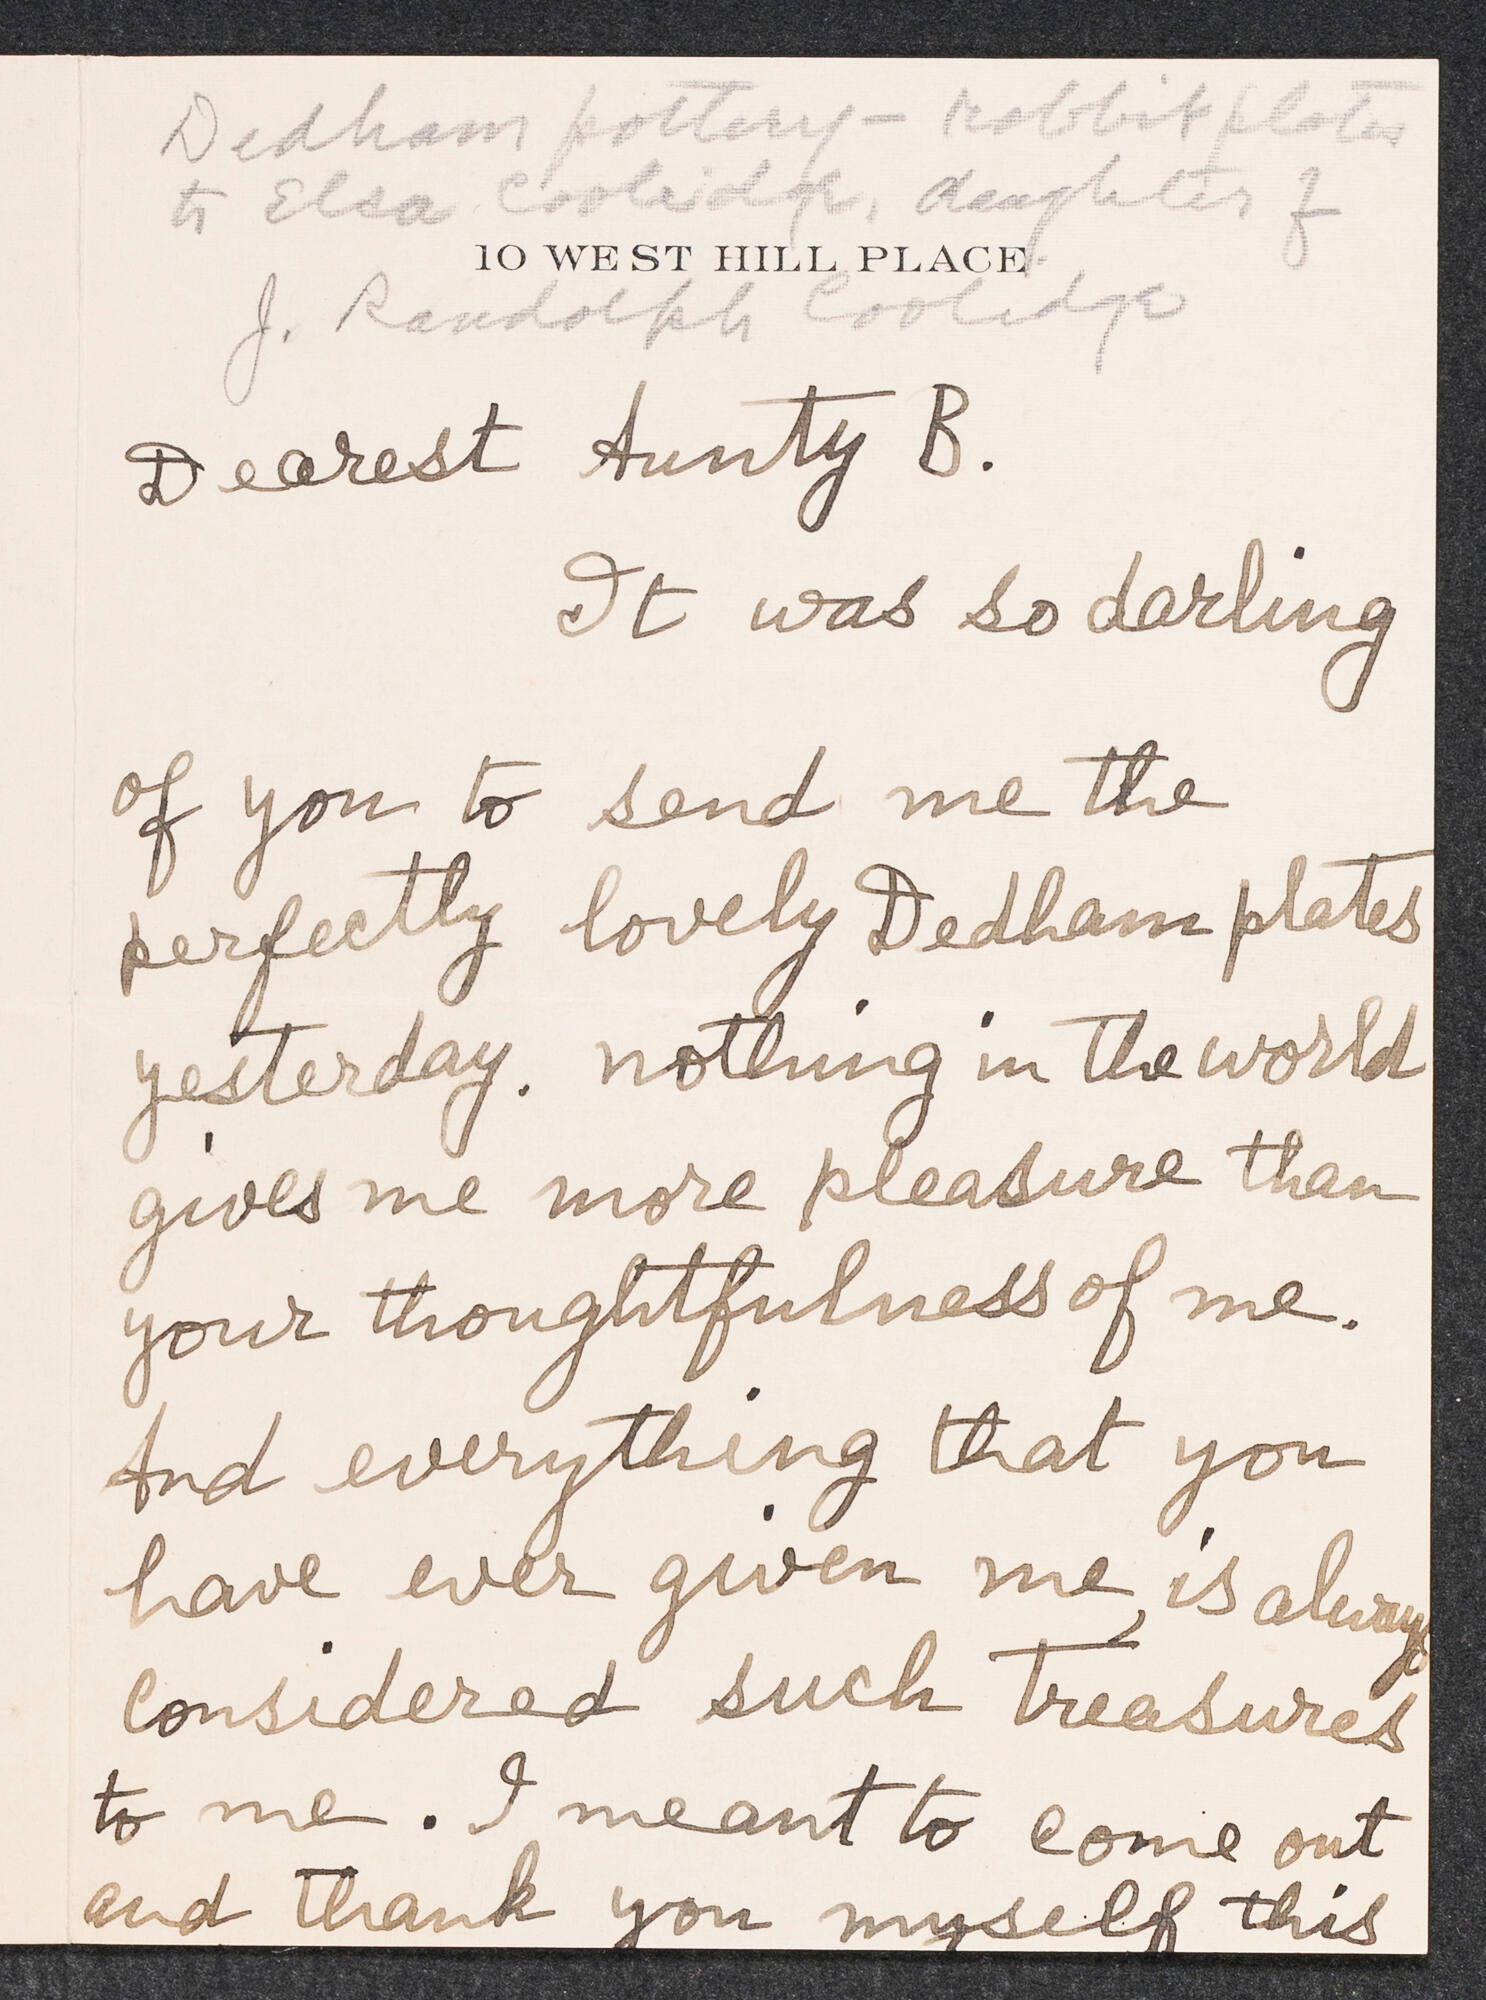 Dedham pottery - rabbit plates
to Elsa Coolidge, daughter of
10 WEST HILL PLACE
J. Randolph Coolidge
Dearest Aunty B.
It was so darling
of you to send me the
perfectly lovely Dedham plates
yesterday. nothing in the world
gives me more pleasure than
your thoughtfulness of me.
And everything that you
have ever given me, is always
considered such treasures
to me. I meant to come out
and thank you myself this